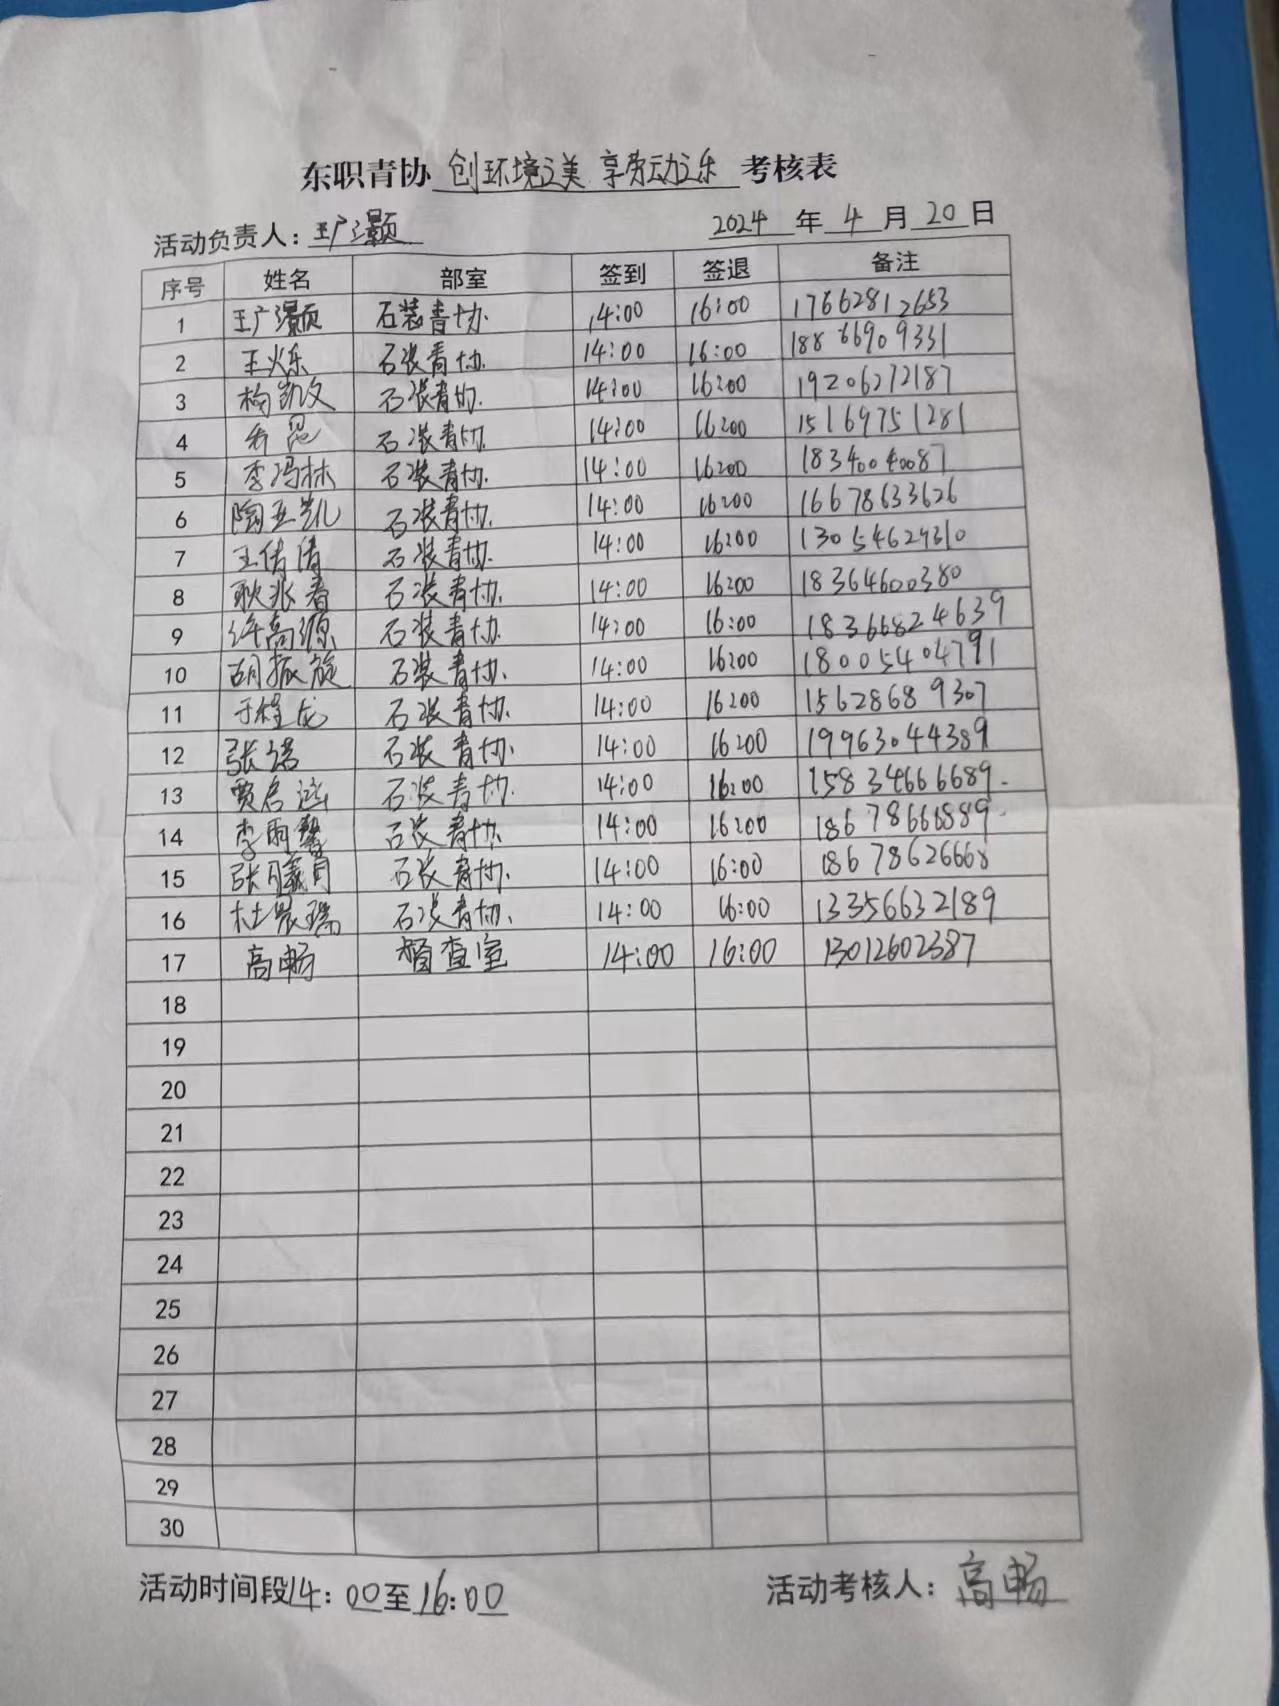 东职青协 创环境之美 享劳动之乐 考核表
活动负责人：王广灏 2024 年 4 月 20 日
序号 姓名 部室 签到 签退 备注
1 王广灏 石装青协 14:00 16:00 17662812653
2 王火乐 石装青协. 14:00 16:00 18866909331
3 杨凯文 石装青协. 14:00 16:00 19206272187
4 石装青协 14:00 16:00 15169751281
5 李冯林 石装青协. 14:00 16:00 18340040087
6 陶亚凯 石装青协. 14:00 16:00 16678633626
7 王倩倩 石装青协. 14:00 16:00 13054629310
8 耿兆春 石装青协. 14:00 16:00 18364600380
9 许高源 石装青协. 14:00 16:00 18366824639
10 胡振旋 石装青协. 14:00 16:00 18005404791
11 于程龙 石装青协. 14:00 16:00 15628689307
12 张诺 石装青协. 14:00 16:00 19963044389
13 贾启 石装青协. 14:00 16:00 15834666689.
14 李雨馨 石装青协. 14:00 16:00 18678666889.
15 石装青协. 14:00 16:00 18678626668
16 杜晨瑞 石装青协. 14:00 16:00 13356632189
17 高畅 督查室 14:00 16:00 13012602387
18
19
20
21
22
23
24
25
26
27
28
29
30
活动时间段14：00至16:00 活动考核人：高畅